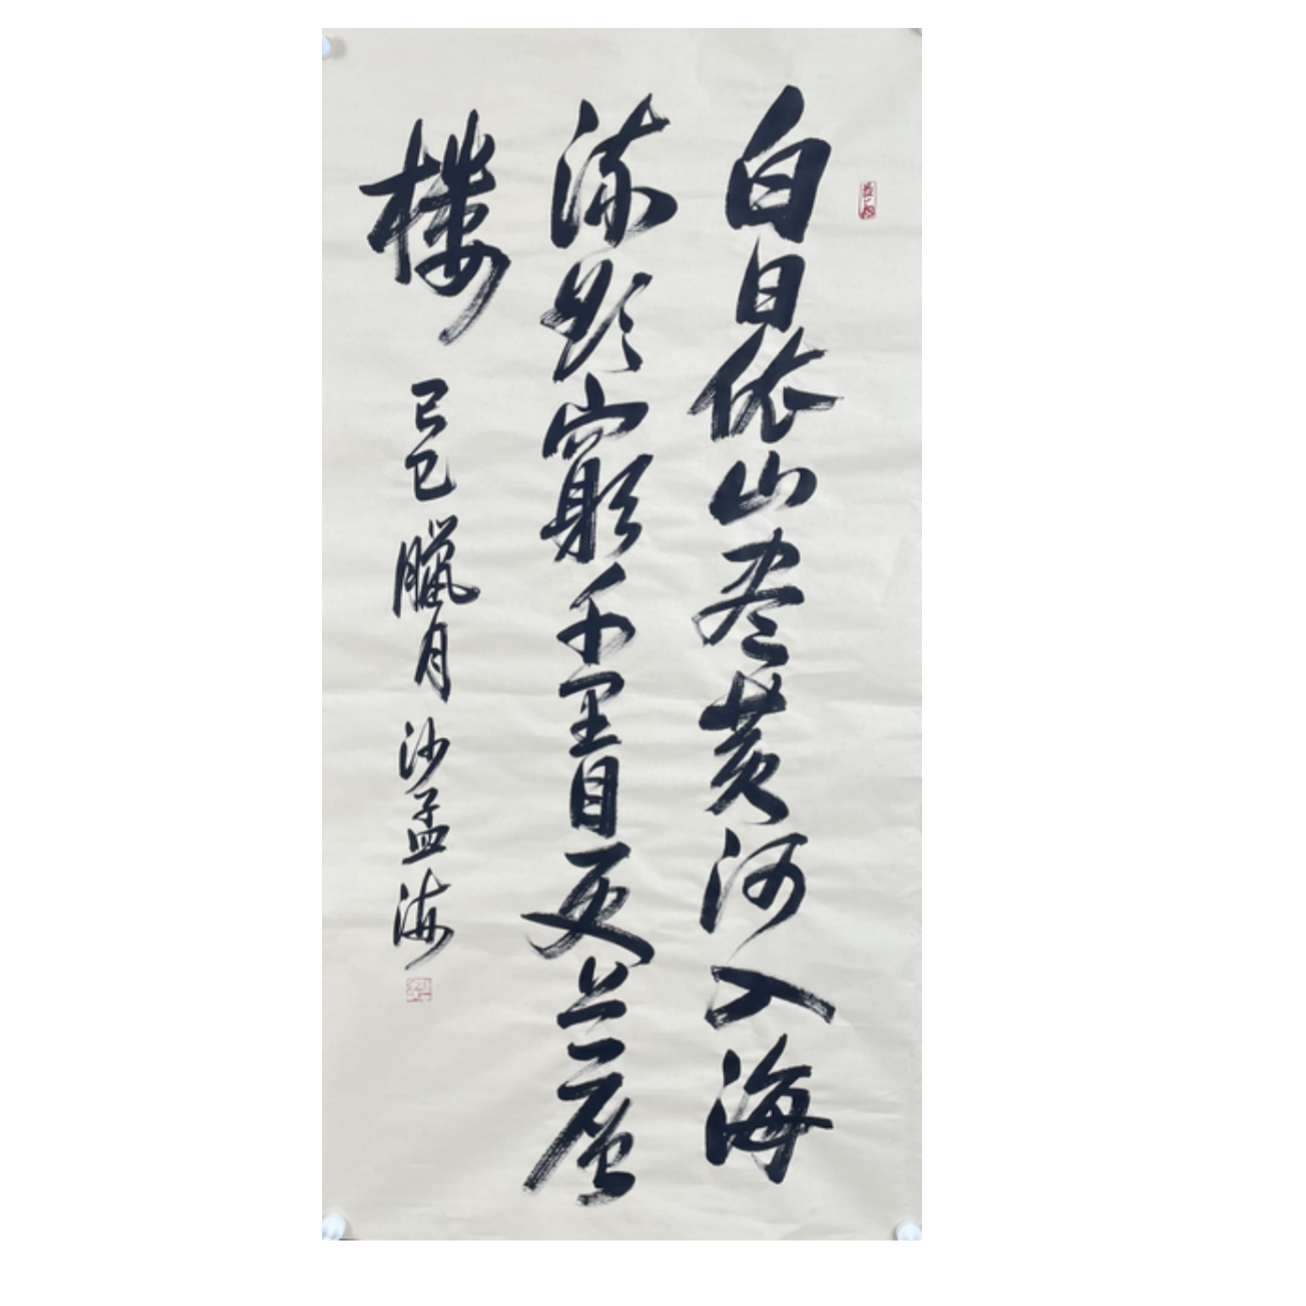 白日依山尽黄河入海
流欲窮千里目更上一层
楼
己巳臘月沙孟海